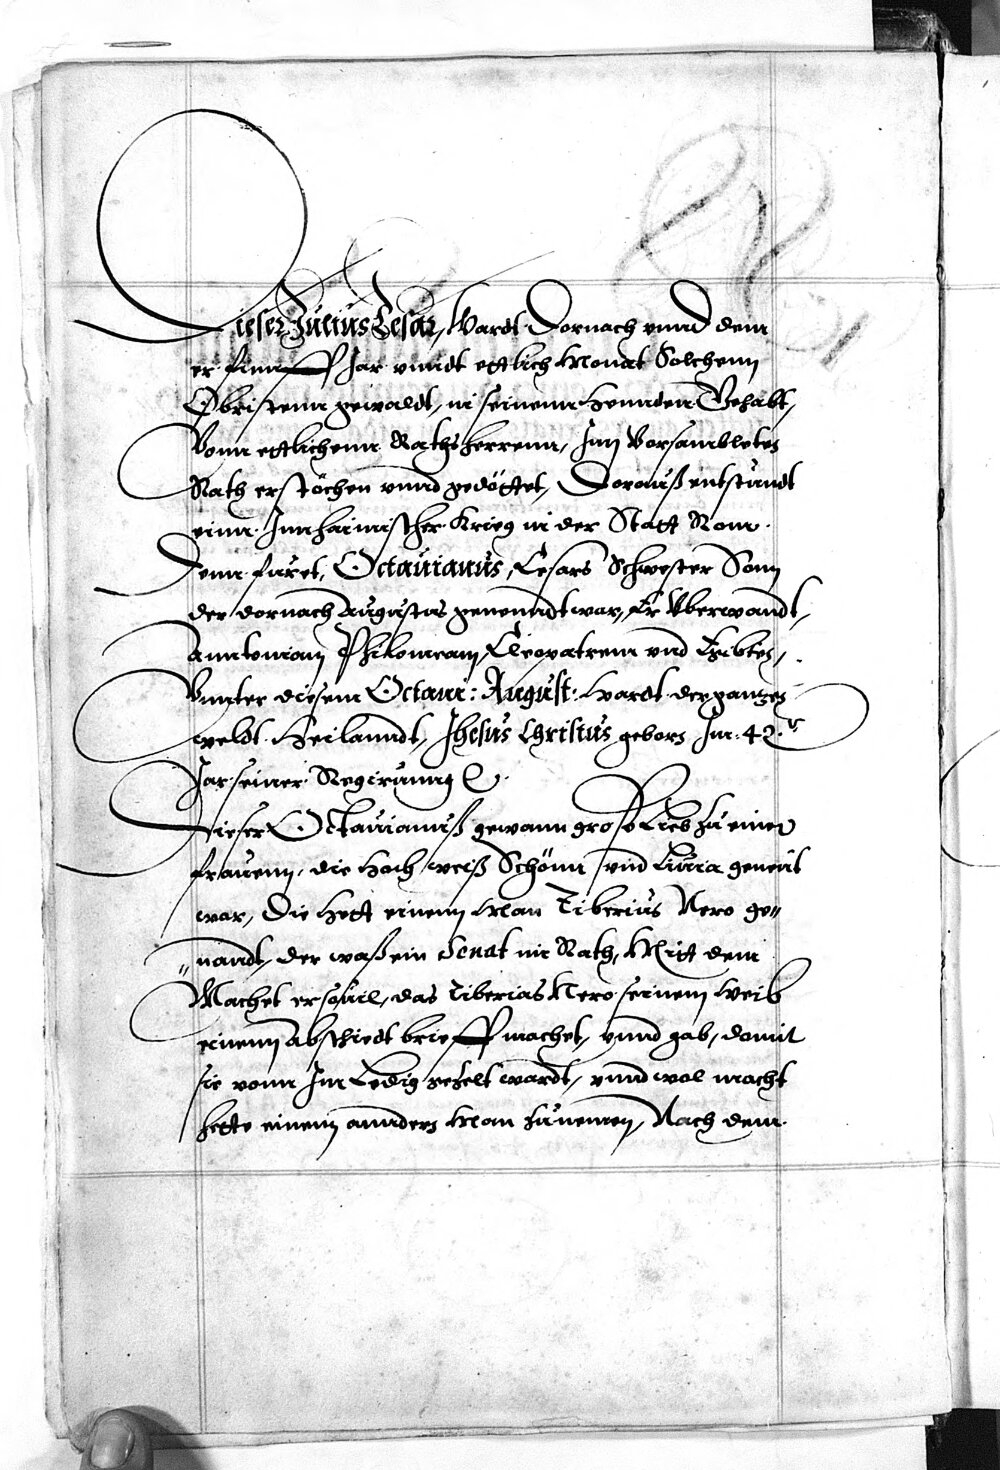 Dieser Julius Cesar, Wardt Dornach vnnd dem
er funnff Jar vnndt ettlich Monat Solchenn
Obristenn gewaldt, in seinenn hennden Gehabt,
Vonn ettlichenn Rathsherrenn, Jnn Versambleten
Rath erstöchen vnnd gedöttet, Dorauß entstundt
einn Jnnhaimischer Krieg in der Statt Rom.
Denn furet, Octauianus, Cesars Schwester Sonn
der dornach Augustus genenndt war, Er Vberwandt,
Anntonium Philomeam, Cleopatrem vnd Egibten,
Vnnter diesem Octaui: August. Wardt der gantzen
weldt Heilanndt, Jhesus Christus geborn Jm 42.
Jar seiner Regirunng
Dieser Octauianuß gewann groß Lieb zu einer
frauenn, die Hoch weiß Schönn vnd Liuia genent
war, Die Hett einenn Man Tiberius Nero ge„
„nandt, der waß ein Senat im Rath, Mitt dem
Machet er souil, das Tiberias Nero seinem Weib
einenn Abschiedt brieff machet, vnnd gab, domit
sie vonn Jm Ledig gezelt wardt, vnnd wol macht
hette einenn anndern Man zunemen, Nach dem